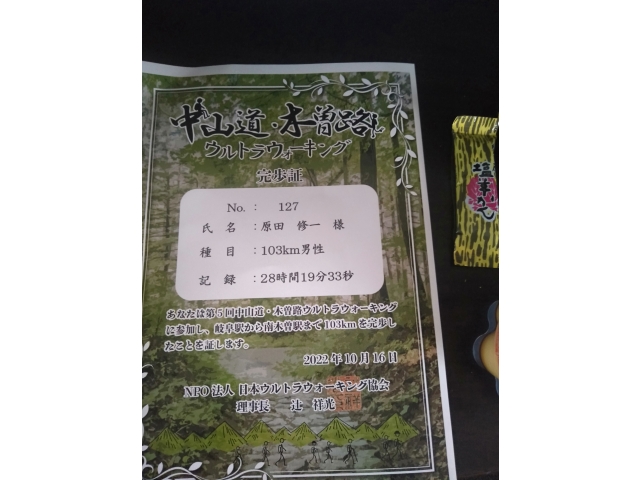 中山道・木曽路
ウルトラウォーキング
完歩証
No. : 127
氏 名 : 原田 修一 様
種 目 : 103km男性
記 録 : 28時間19分33秒
あなたは第5回中山道・木曽路ウルトラウォーキング
に参加し、岐阜駅から南木曽駅まで103kmを完歩し
たことを証します。
2022年10月16日
NPO法人 日本ウルトラウォーキング協会
理事長 辻 祥光